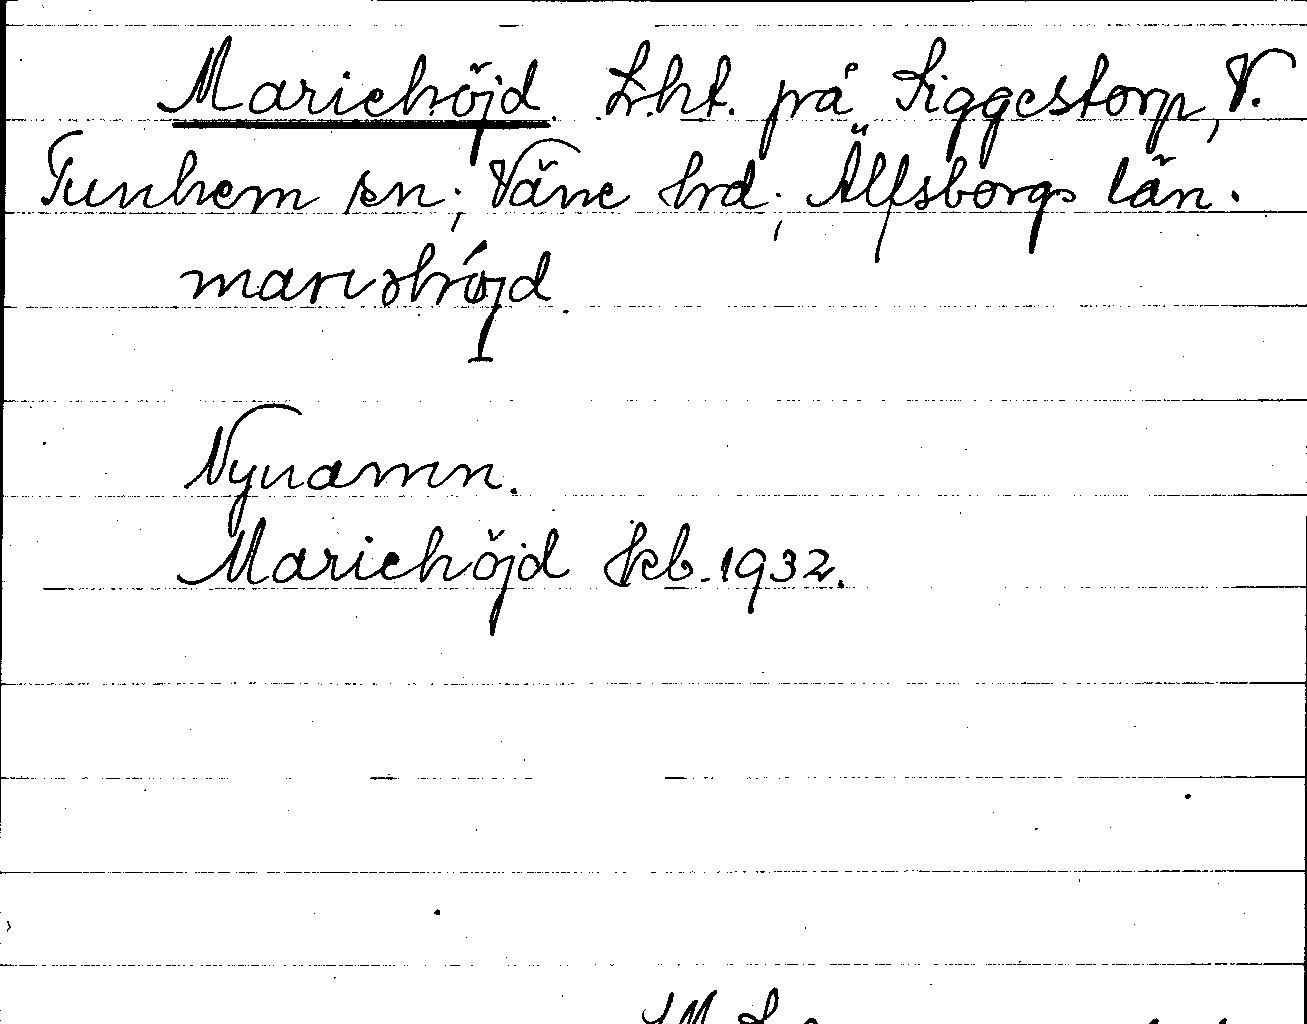 Mariehöjd. Lht. på Siggestorp, V.
Tunhem sn; Väne hd; Älfsborgs län.
Nynamn.
Mariehöjd kb. 1932.